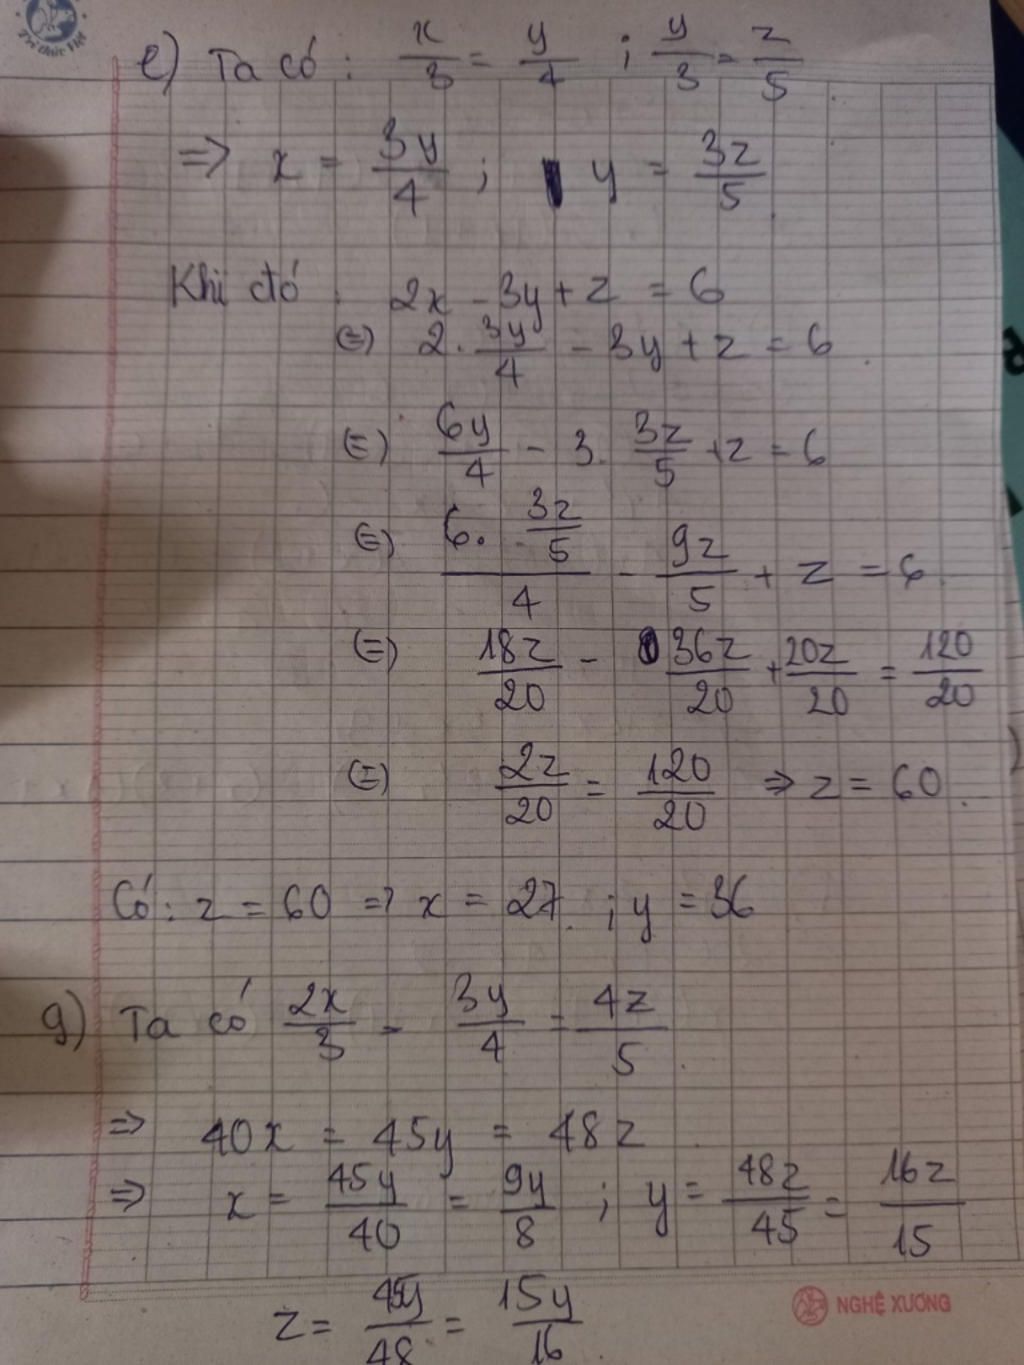 Trí thức Việt
e) Ta có : x/3 = y/4 ; y/3 = z/5
=> x = 3y/4 ; y = 3z/5
Khi đó : 2x - 3y + z = 6
(=) 2 . 3y/4 - 3y + z = 6
(=) 6y/4 - 3 . 3z/5 + z = 6
(=) (6 . 3z/5)/4 - 9z/5 + z = 6
(=) 18z/20 - 36z/20 + 20z/20 = 120/20
(=) 2z/20 = 120/20 => z = 60.
Có : z = 60 => x = 27 ; y = 36
g) Ta có 2x/3 = 3y/4 = 4z/5
=> 40x = 45y = 48z
=> x = 45y/40 = 9y/8 ; y = 48z/45 = 16z/15
z = 45y/48 = 15y/16
NGHỆ XƯƠNG